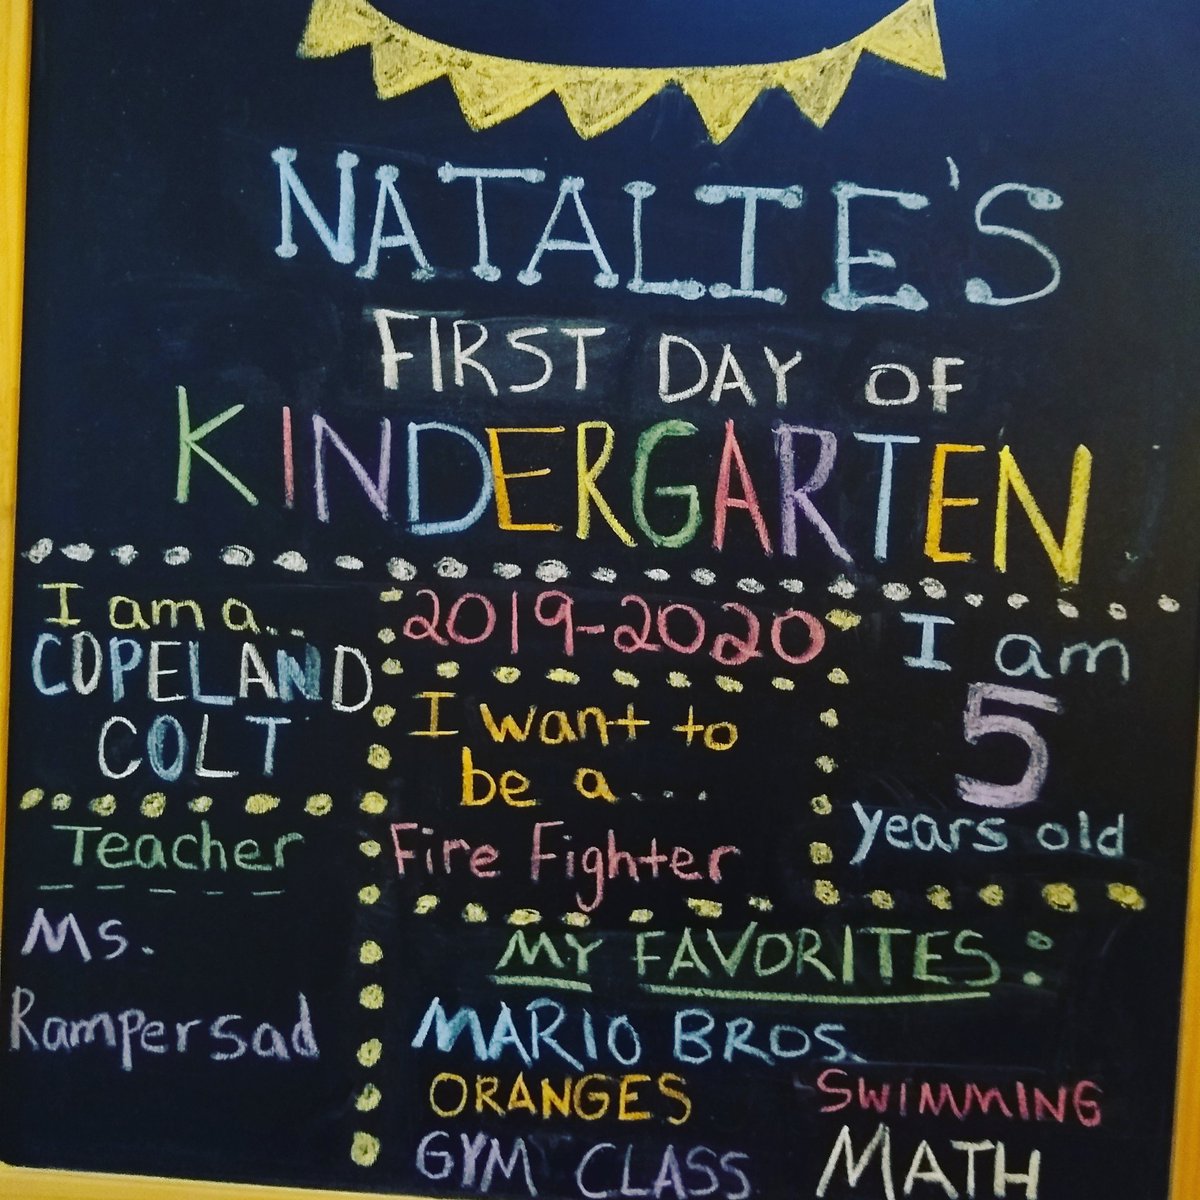 NATALIE'S
FIRST DAY OF
KINDERGARTEN
I am a..
COPELAND
COLT
Teacher
Ms.
Rampersad
2019-2020
I want to
be a...
Fire Fighter
I am
5
years old
MY FAVORITES:
MARIO BROS.
ORANGES SWIMMING
GYM CLASS MATH